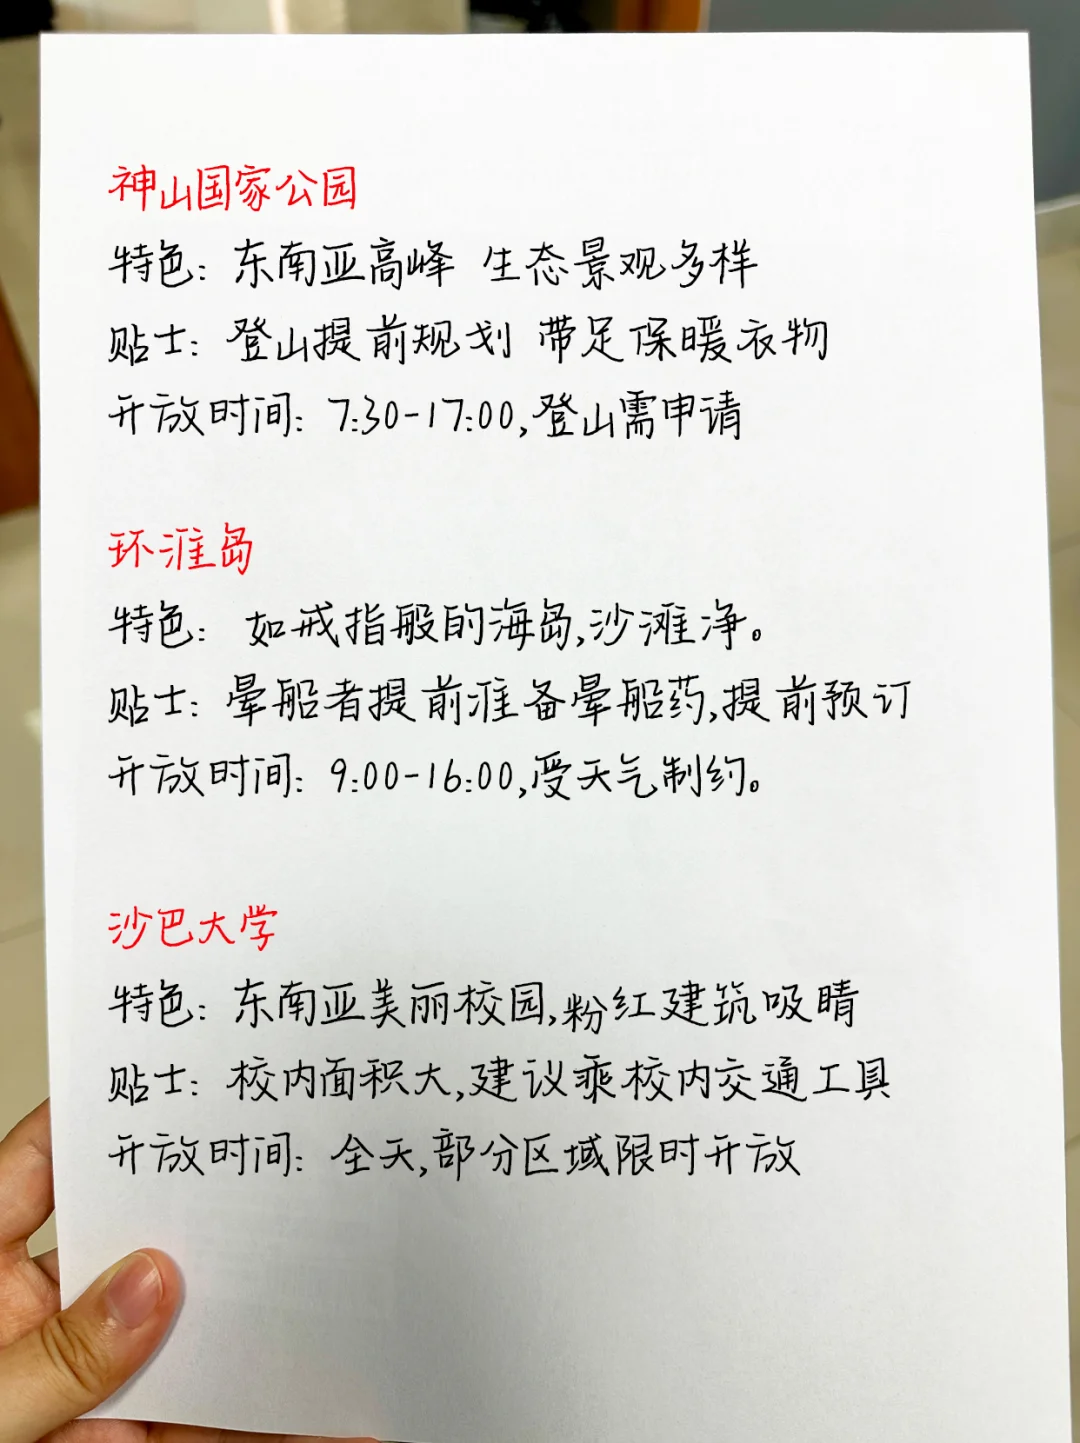 神山国家公园
特色: 东南亚高峰 生态景观多样
贴士: 登山提前规划 带足保暖衣物
开放时间: 7:30-17:00,登山需申请
环淮岛
特色: 如戒指般的海岛,沙滩净。
贴士: 晕船者提前准备晕船药,提前预订
开放时间: 9:00-16:00,受天气制约。
沙巴大学
特色: 东南亚美丽校园,粉红建筑吸睛
贴士: 校内面积大,建议乘校内交通工具
开放时间: 全天,部分区域限时开放